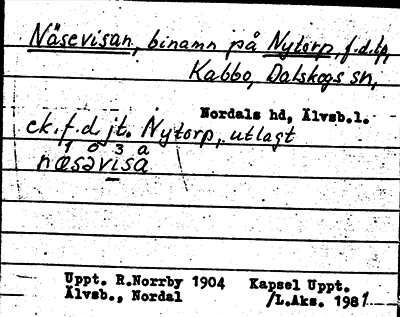 Näsevisan, binamn på Nytorp, f.d. tp,
Kabbo, Dalskogs sn,
Nordals hd, Älvsb.l.
ek. f.d. jt. Nytorp, utlagt
1 0 3 a
næsavisa
Uppt. R.Norrby 1904 Kapsel Uppt.
Älvsb., Nordal /L.Aks. 1981